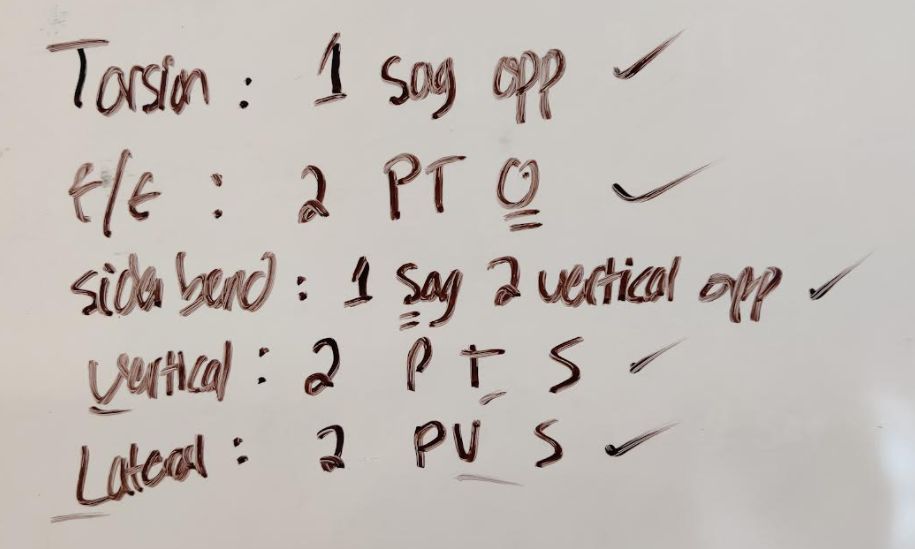 Torsion : 1 sag opp ✓
F/E : 2 PT O ✓
side bend : 1 sag 2 vertical opp ✓
Vertical : 2 P T S ✓
Lateral : 2 PV S ✓